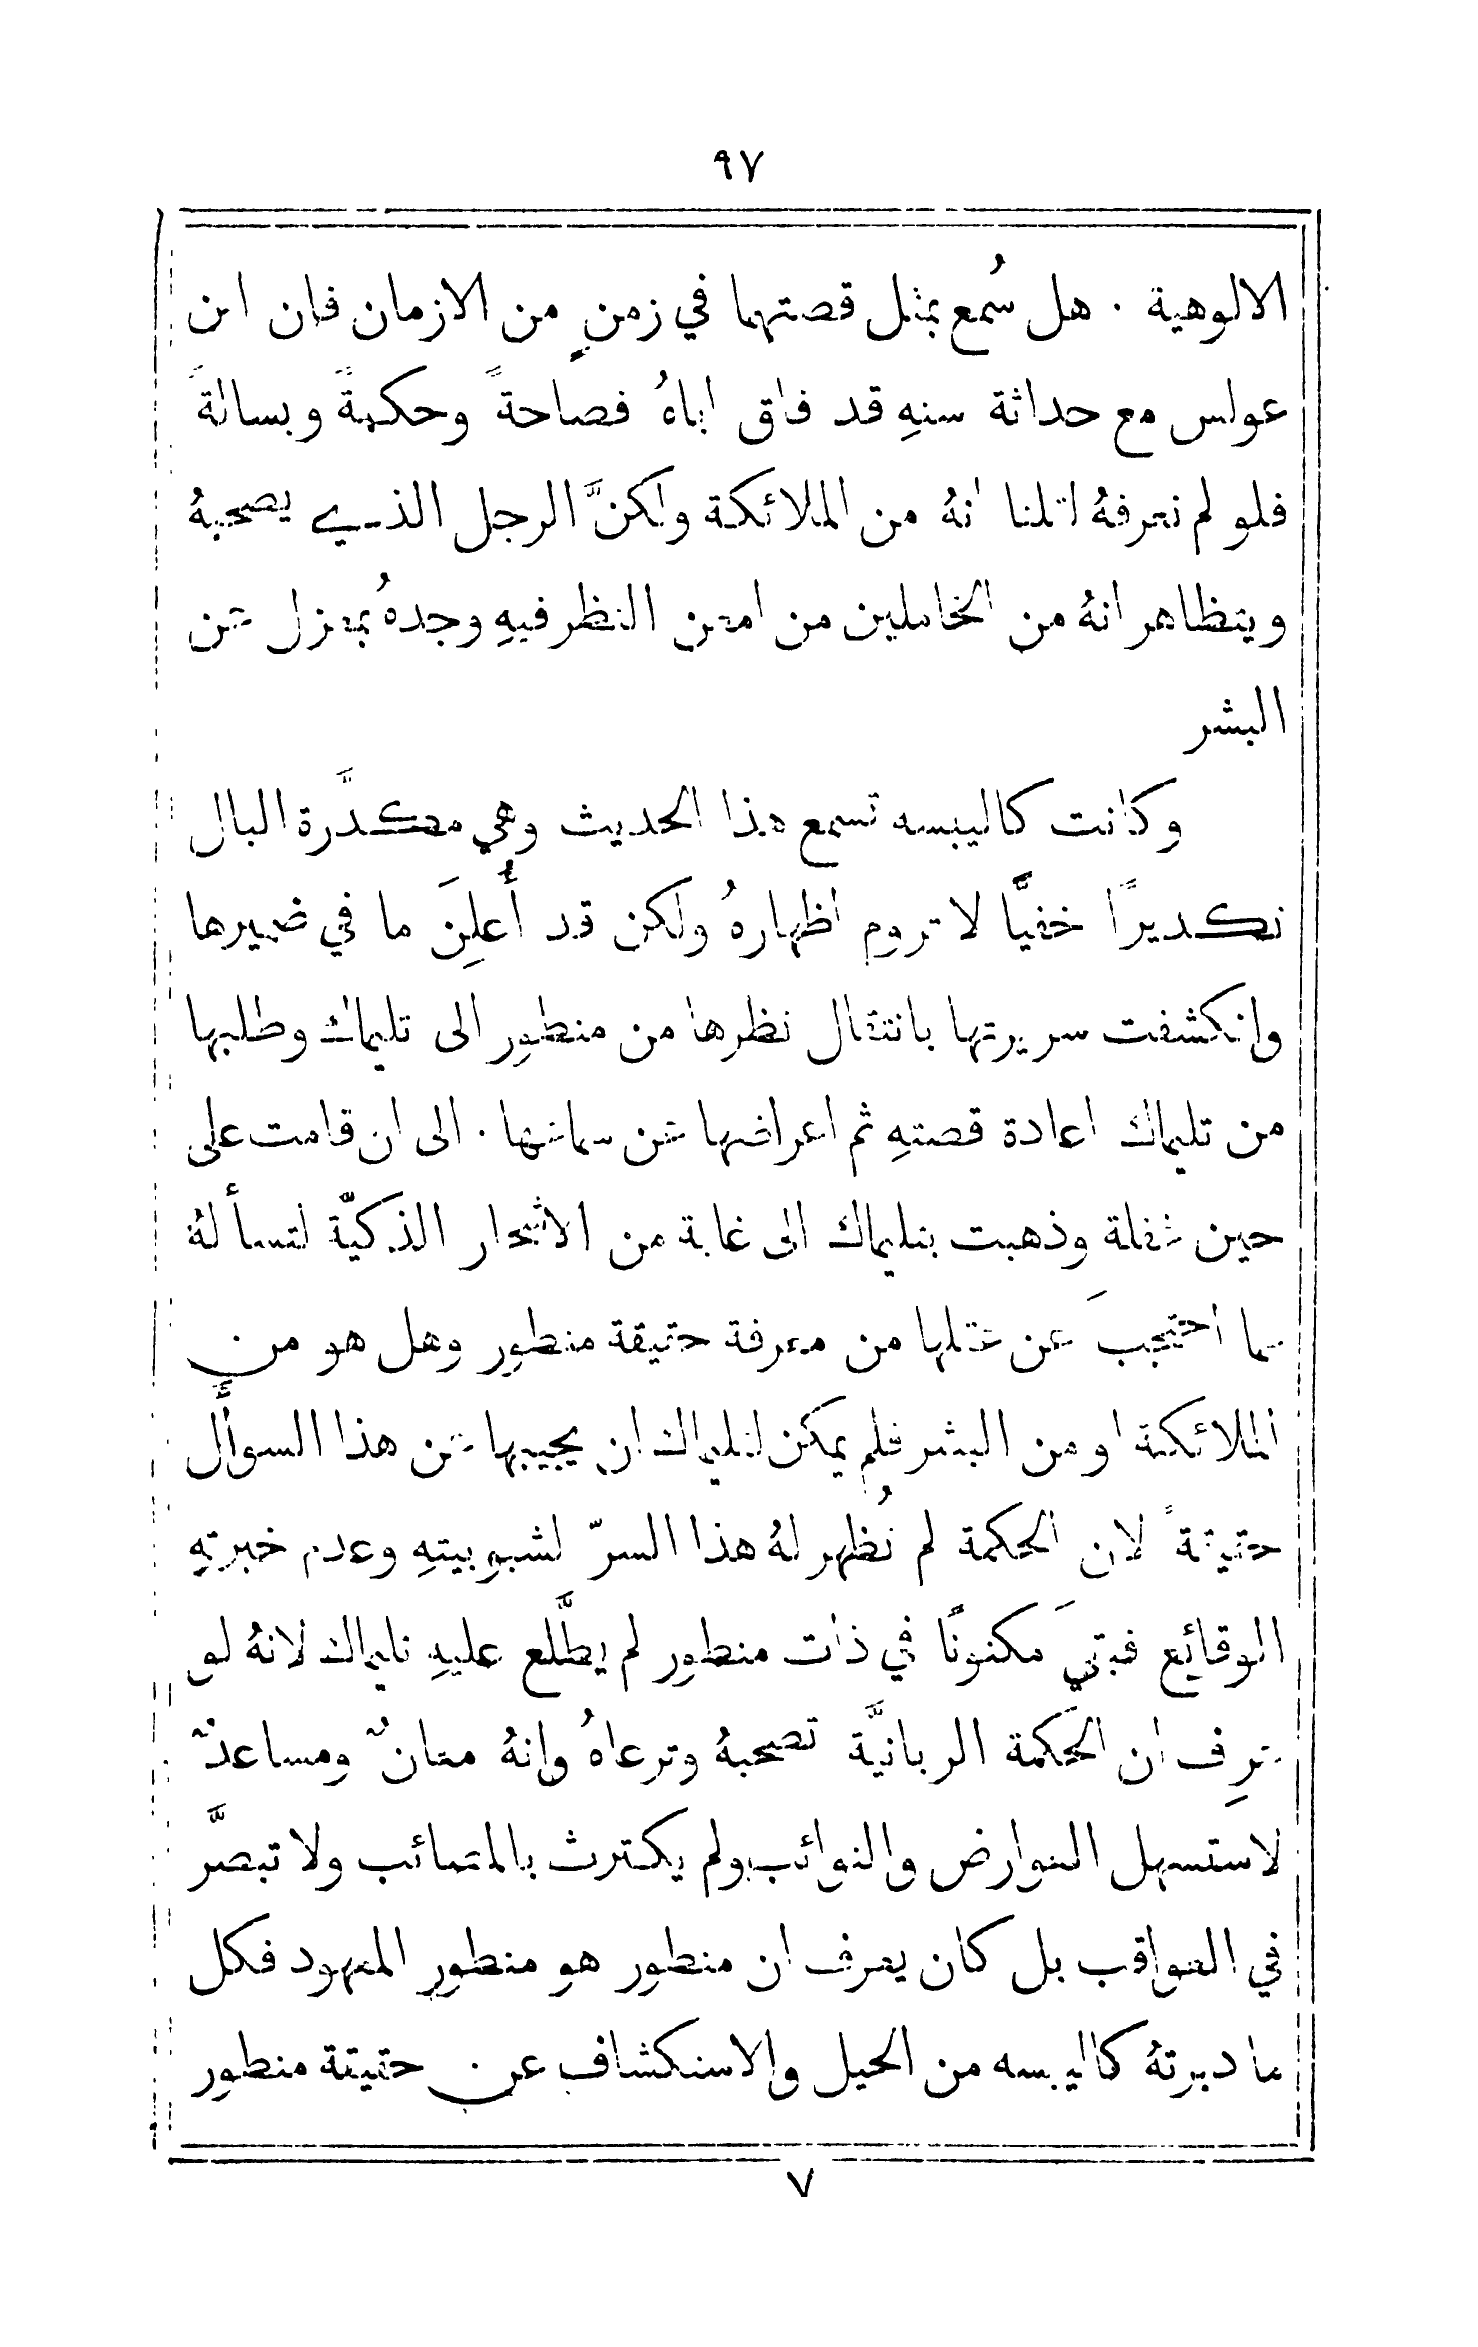 ٩٧
الالوهية . هل سُمع بمثل قصتها في زمنٍ من الازمان فان ابن
عولس مع حداثة سنهِ قد فاق اباهُ فصاحةً وحكمةً وبسالةً
فلو لم نعرفهُ لقلنا انهُ من الملائكة ولكنَّ الرجل الذي يصحبهُ
ويتظاهر انهُ من الخاملين من امعن النظر فيهِ وجدهُ بمعزل عن
البشر
وكانت كاليبسه تسمع هذا الحديث وهي مكدَّرة البال
تكديرًا خفيًّا لا تروم اظهارهُ ولكن قد أُعلِنَ ما في ضميرها
وانكشفت سريرتها بانتقال نظرها من منطور الى تليماك وطلبها
من تليماك اعادة قصتهِ ثم اعراضها عن سماعها . الى ان قامت على
حين غفلة وذهبت بتليماك الى غابة من الاشجار الذكيّة لتسألهُ
عما احتجبَ عن عقلها من معرفة حقيقة منطور وهل هو من
الملائكة او من البشر فلم يمكن لتليماك ان يجيبها عن هذا السوأَل
حقيقةً لان الحكمة لم تُظهر لهُ هذا السرّ لشبوبيتهِ وعدم خبرتهِ
الوقائع فبقيَ مكنونًا في ذات منطور لم يطَّلع عليهِ تليماك لانهُ لو
عرِف ان الحكمة الربانيَّة تصحبهُ وترعاهُ وانهُ معانٌ ومساعدٌ
لاستسهل العوارض والنوائب ولم يكترث بالمتصائب ولا تبصَّر
في العواقب بل كان يعرف ان منطور هو منطور المعهود فكل
ما دبرتهُ كاليبسه من الحيل والاستكشاف عن حقيقة منطور
٧